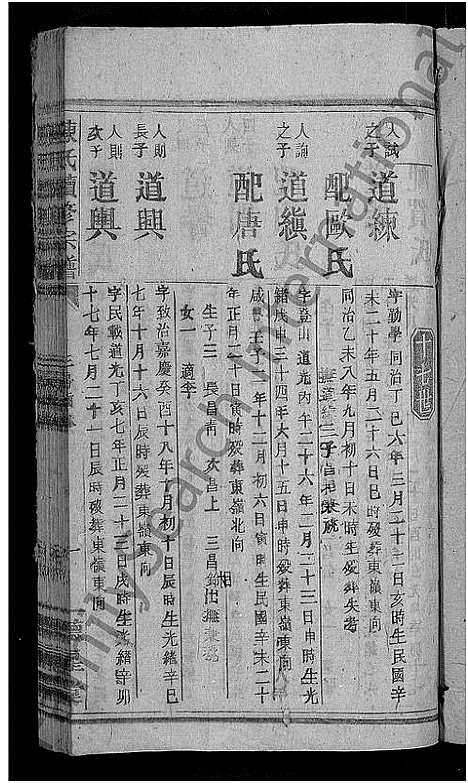 十七世
人誠之子
道練
字勤學同治丁巳六年三月二十二日亥時生民國辛
未二十年五月二十六日巳時歿葬東嶺東向
配歐氏
同治乙未八年九月初十日未時生歿葬失考
人論之子
道縝
字登山道光丙午二十六年二月二十三日申時生光
緒戊申三十四年六月十五日申時歿葬東嶺東向
配唐氏
咸豐壬子二年十二月初六日寅時生民國辛未二十
年正月二十日寅時歿葬東嶺北向
生子三 長昌南 次昌上 三昌
女一 適李
人則長子
道興
字致治嘉慶癸酉十八年十月初十日辰時生光緒辛巳
七年十月十六日辰時歿葬東嶺東向
人則次子
道輿
字民載道光丁亥七年正月二十三日戌時生光緒辛卯
十七年七月二十一日辰時歿葬東嶺東向
陳氏續修宗譜
德星堂
familysearch International